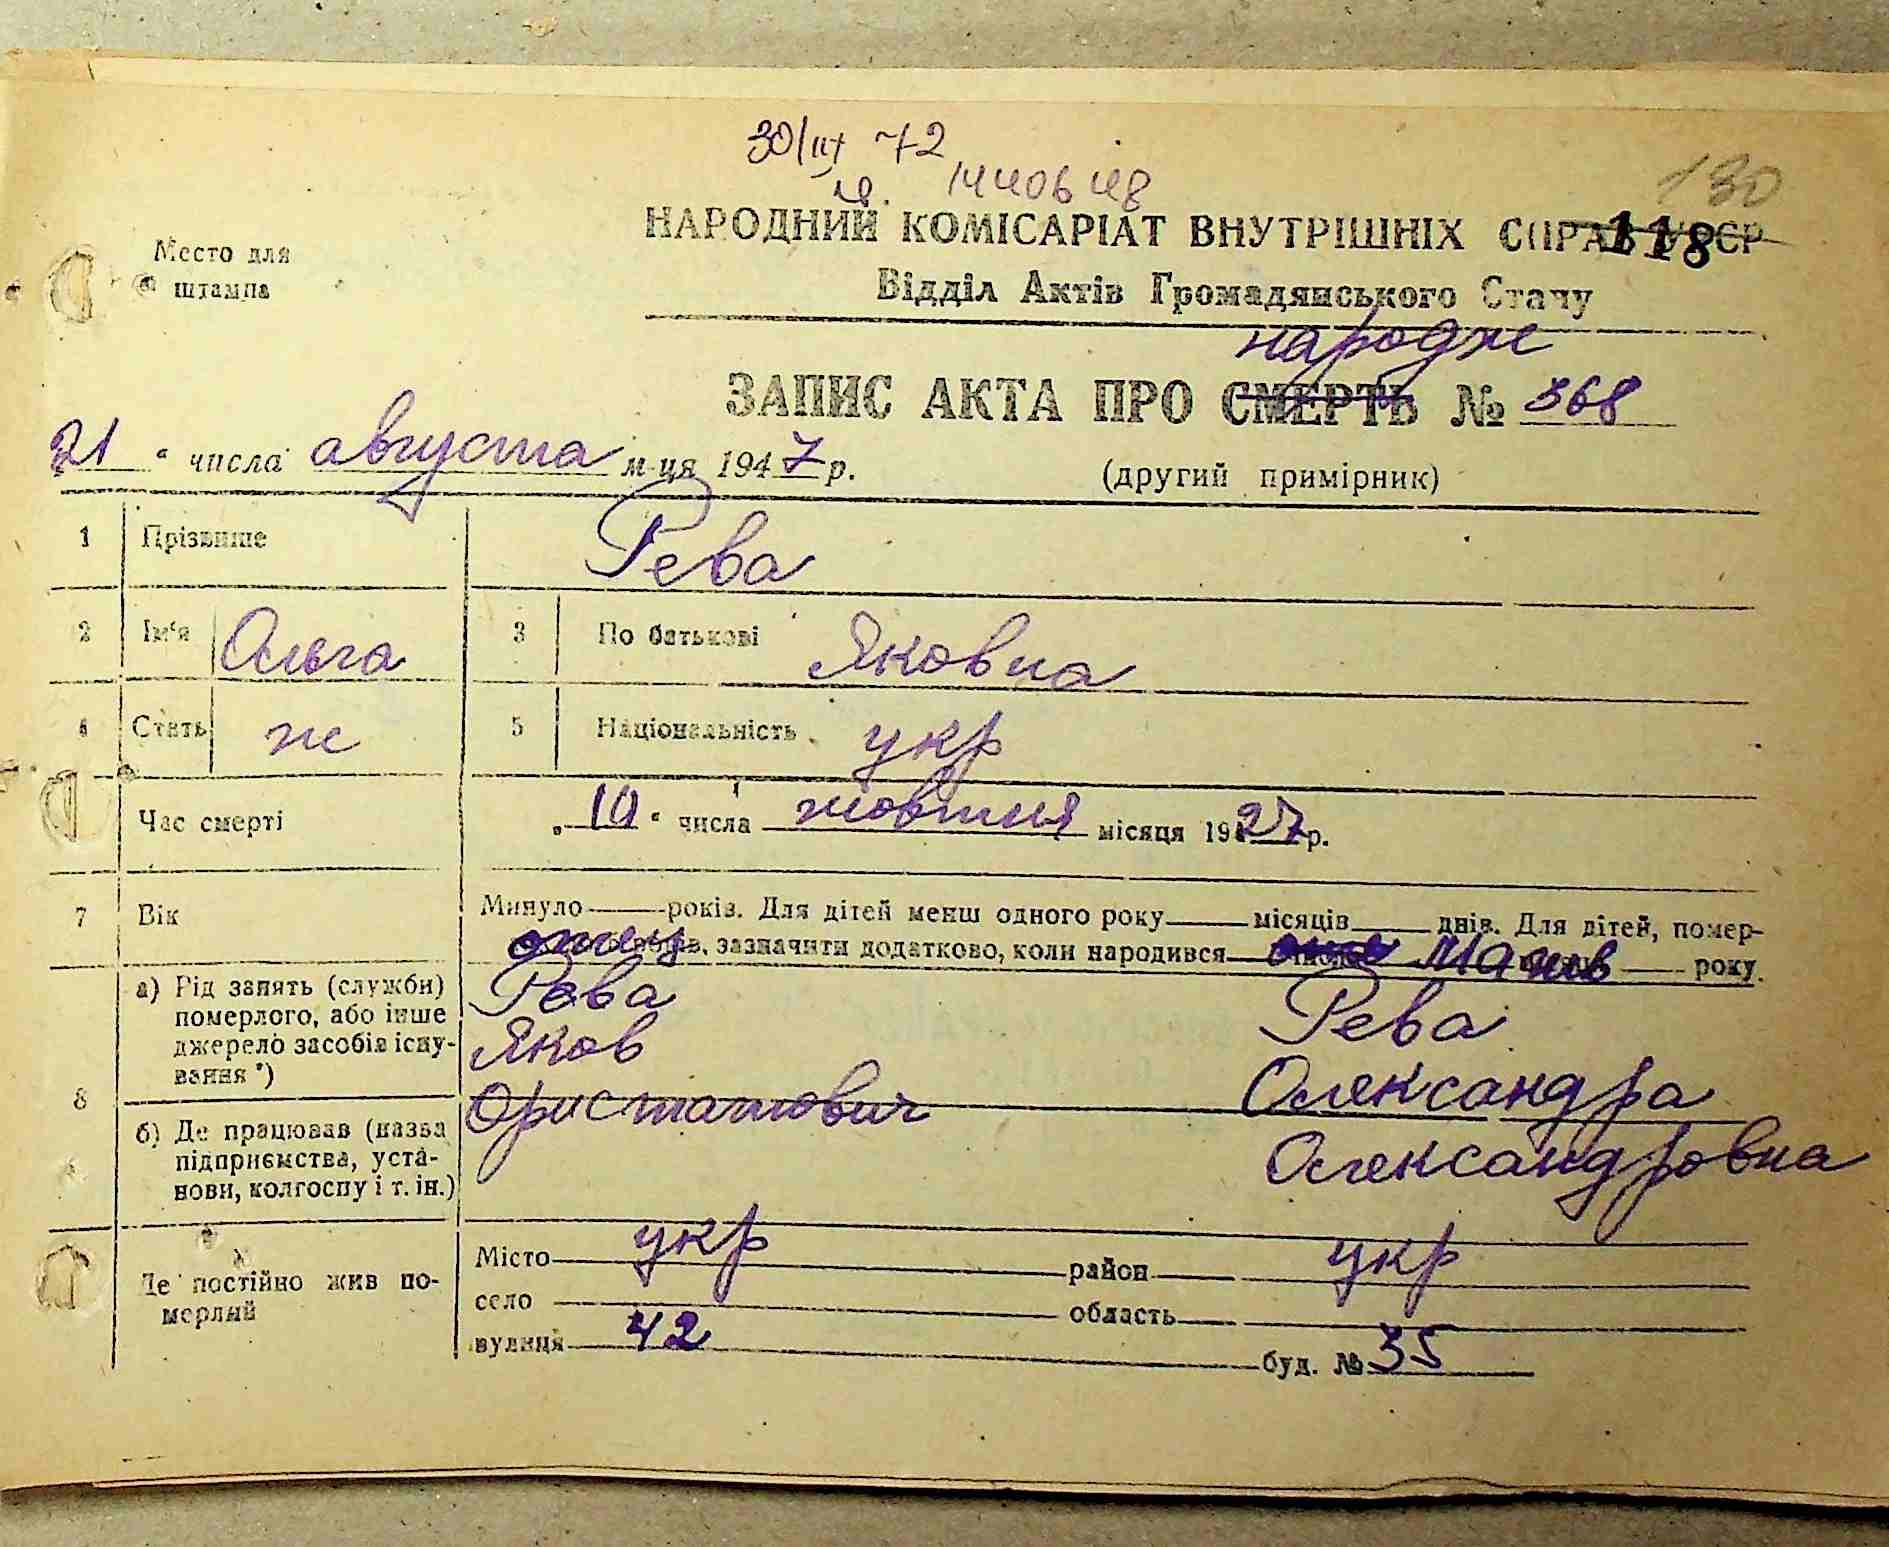 30/IX 72
130
НАРОДНИЙ КОМІСАРІАТ ВНУТРІШНІХ СПРАВ УССР
118
Место для
штампа
Відділ Актів Громадянського Стану
народже
ЗАПИС АКТА ПРО СМЕРТЬ № 368
21 " числа августа м-ця 1947 р. (другий примірник)
1 Прізвище Рева
2 Ім'я Ольга 3 По батькові Яковна
4 Стать ж 5 Національність укр
Час смерті „ 10 " числа жовтня місяця 1927 р.
7 Вік Минуло років. Для дітей менш одного року місяців днів. Для дітей, помер-
отец зазначити додатково, коли народився року.
8 а) Рід занять (служби) померлого, або інше джерело засобів існування *)
Рева Рева
Яков Олександра
Ористатович Олександровна
б) Де працював (назва підприємства, установи, колгоспу і т. ін.)
Де постійно жив померлий
Місто укр район укр
село область
вулиця 42 буд. № 35